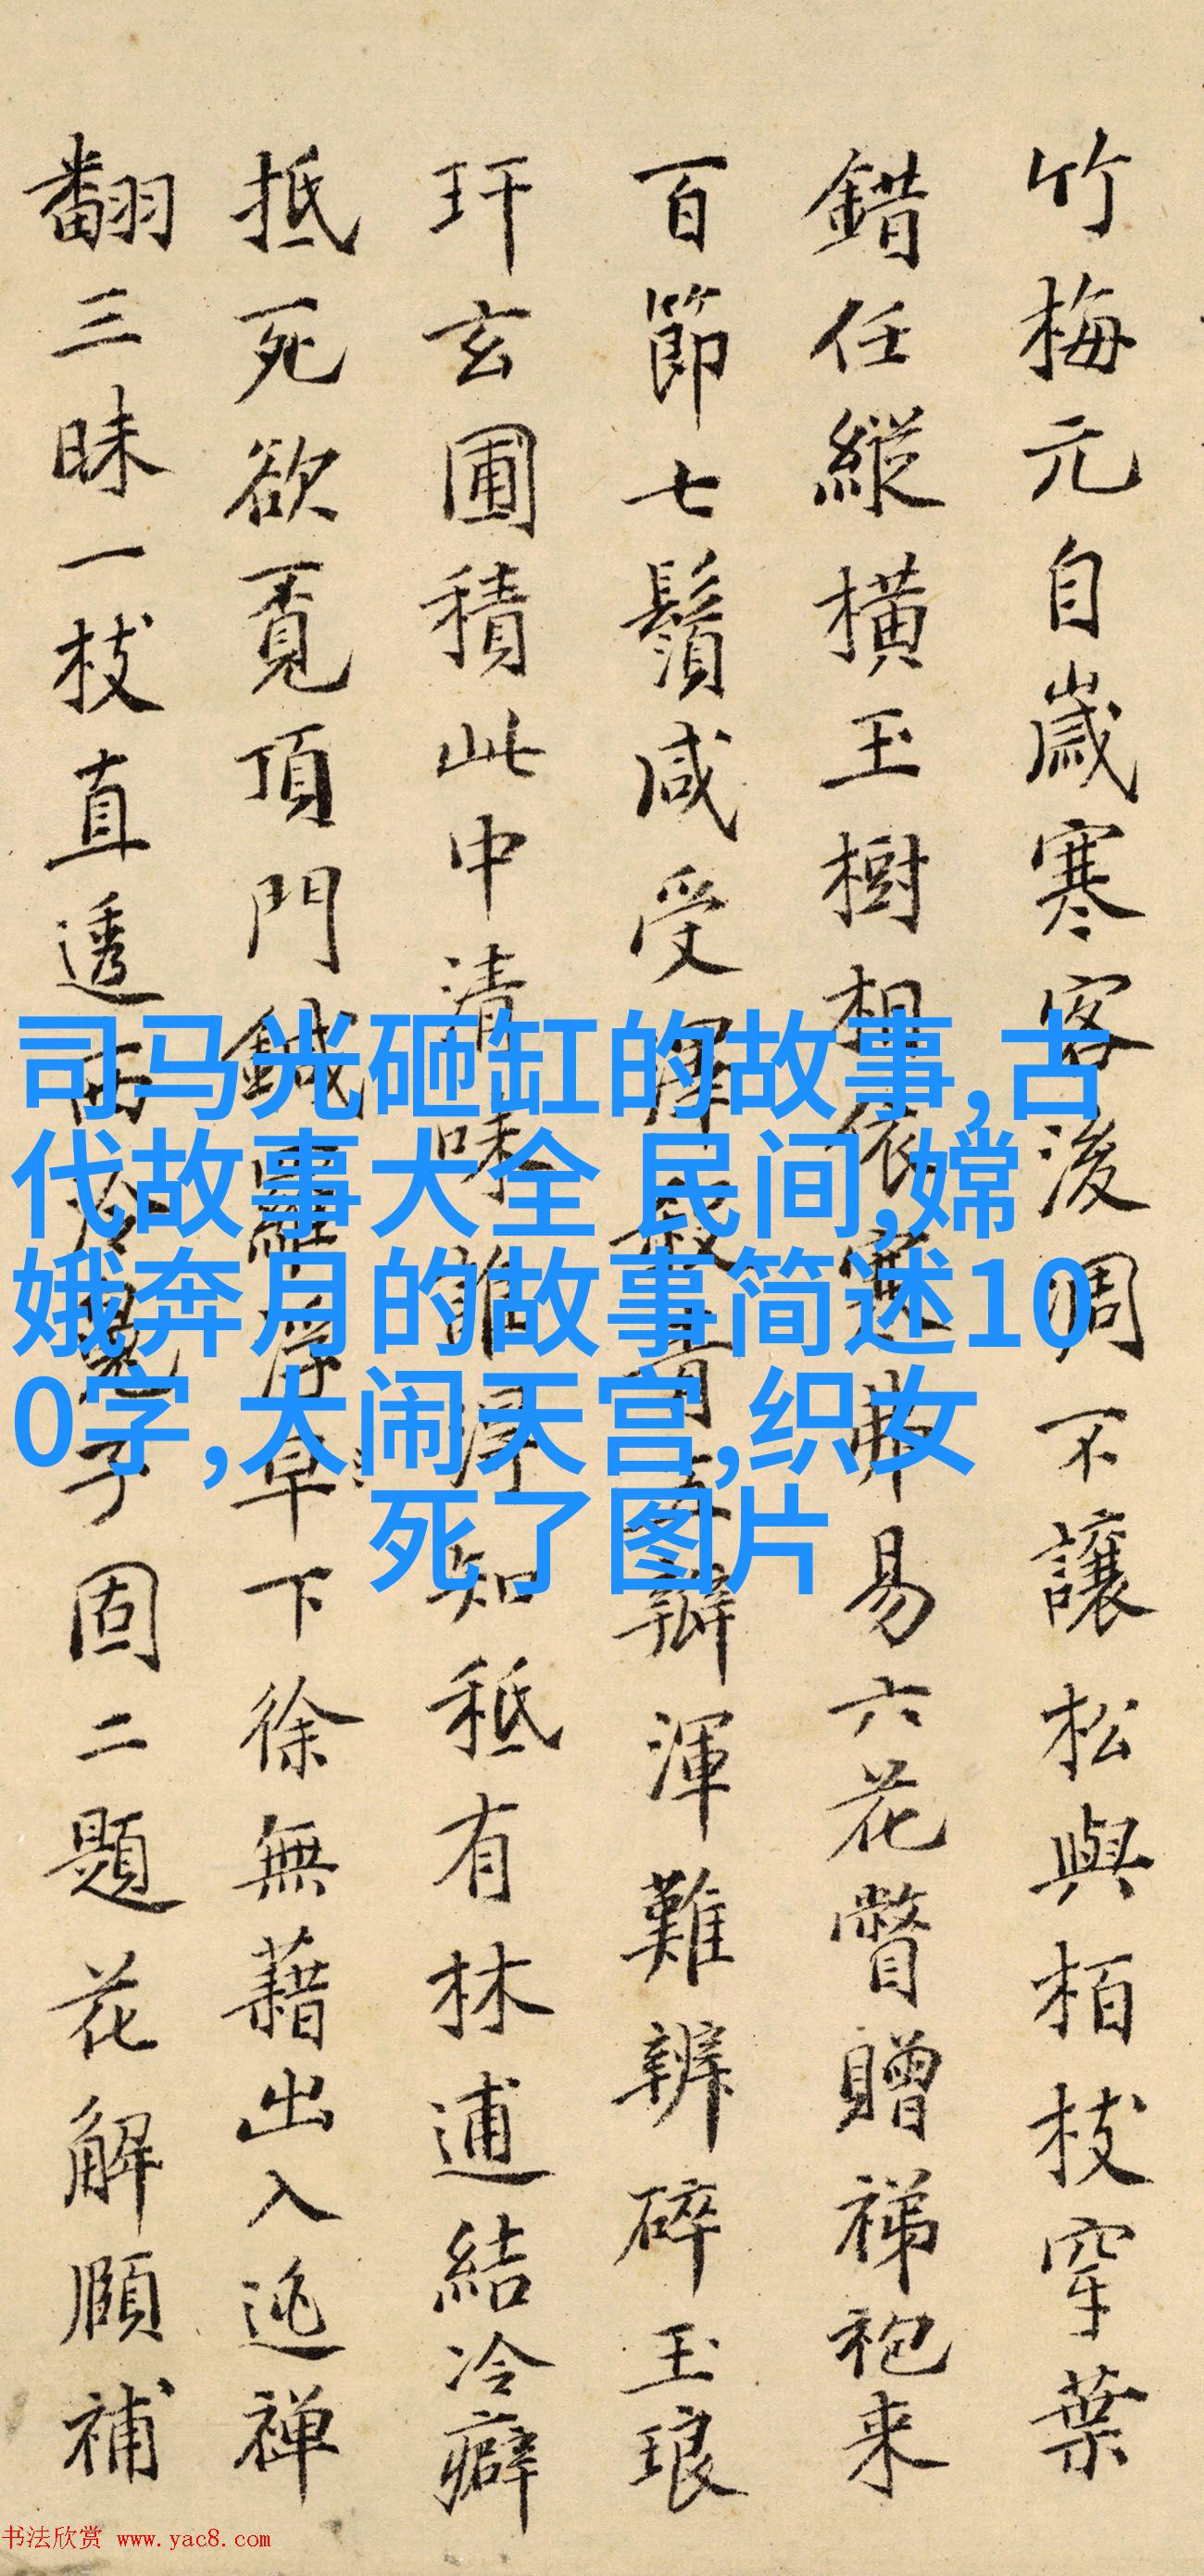 竹梅元自歲寒客後凋不讓松與栢枝穿葉
錯任縱橫玉樹相依寒弗易六花瞥贈褅袍来
百節七鬚咸受澤辦渾難辨碎玉琅
玕玄圃積此中清味誰得知秪有林逋結冷癖
抵死欲覓頂門鍼羅浮早下徐無藉出入迯禅
翻三昧一枝直透固二題花解頤補
司马光砸缸的故事,古
代故事大全 民间,嫦
娥奔月的故事简述10
0字,大闹天宫,织女
死了图片
书法欣赏 www.yac8.com